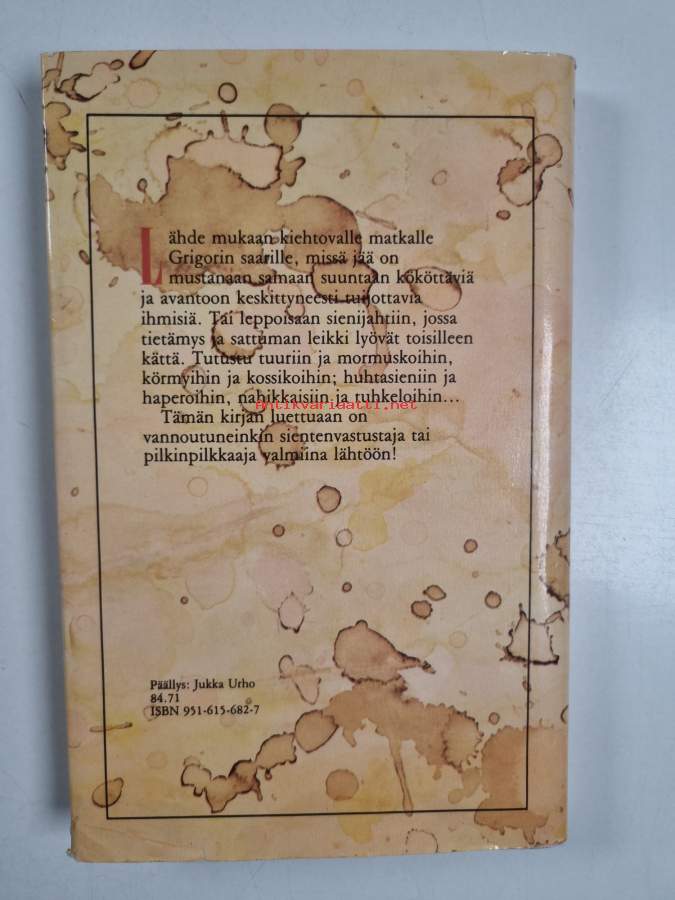 Lähde mukaan kiehtovalle matkalle
Grigorin saarille, missä jää on
mustanaan samaan suuntaan kököttäviä
ja avantoon keskittyneesti tuijottavia
ihmisiä. Tai leppoisaan sienijahtiin, jossa
tietämys ja sattuman leikki lyövät toisilleen
kättä. Tutustu tuuriin ja mormuskoihin,
körmyihin ja kossikoihin; huhtasieniin ja
haperoihin, nahikkaisiin ja tuhkeloihin...
Antikvariaatti.net
Tämän kirjan luettuaan on
vannoutuneinkin sientenvastustaja tai
pilkinpilkkaaja valmiina lähtöön!
Päällys: Jukka Urho
84.71
ISBN 951-615-682-7